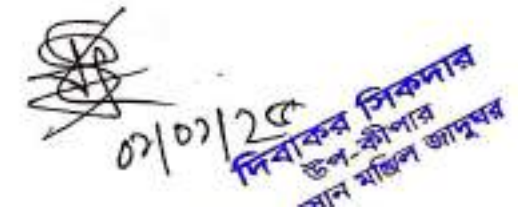 ০১/০১/২৫
দিবাকর সিকদার
উপ-কীপার
মঞ্জিল জাদুঘর